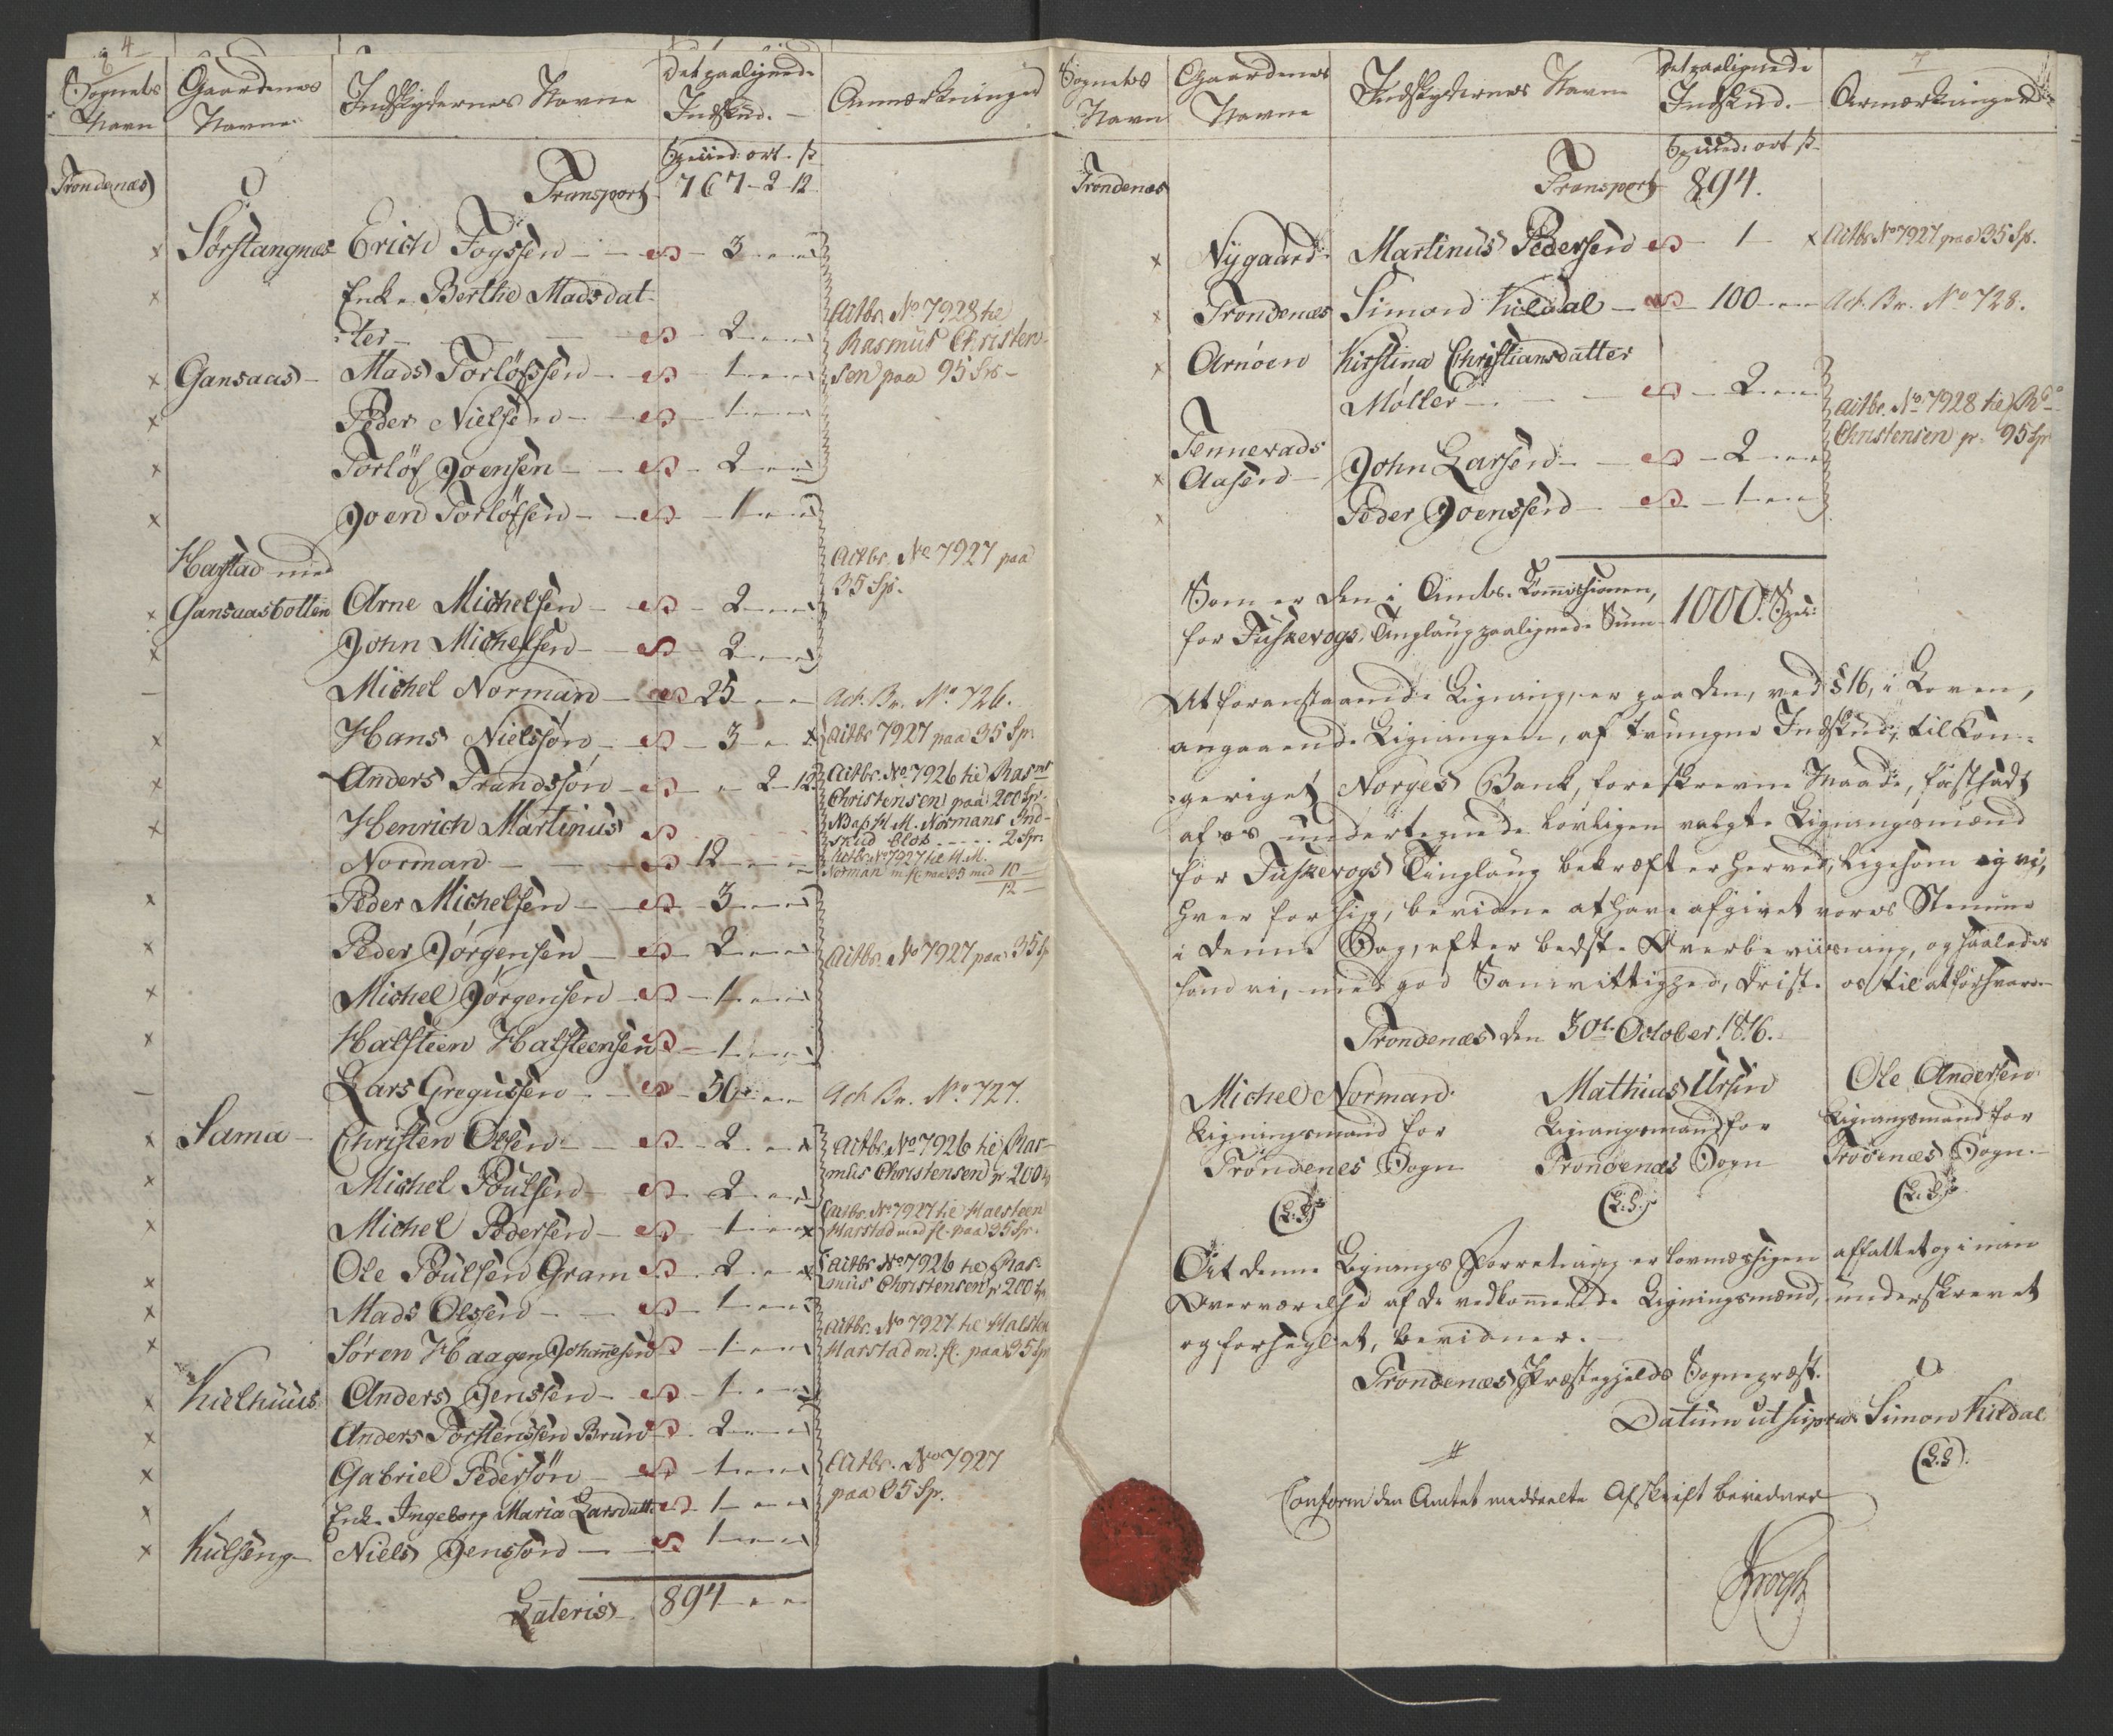 4
Sognets Navn | Gaardenes Navne | Indskydernes Navne | Det paalignede Indskud. | Anmærkninger
Specied: ort. ß
Trondenæs | Transport | 767 - 2 - 12
Sørstangnes | Erich Foyssen | 3
Enke Berthe Madsdat-
ter | 2 | Actbr. No 7928 til
Rasmus Christen-
sen paa 95 Sp.
Gansaas | Mads Torløfssen | 1
Peder Nielsen | 1
Torløf Joensen | 2
Joen Torløfsen | 1
Harstad med
Gansaasbotten | Arne Michelsen | 2 | Actbr. No 7927 paa
35 Sp.
John Michelsen | 2
Michel Norman | 25 | Act. Br. No 726.
Hans Nielssøn | 3 | Actbr 7927 paa 35 Sp.
Anders Trandssøn | 2 - 12 | Actbr. No 7926 til Rasms
Christensen paa 200 Sp.
Henrich Martinus
Norman | 12 | NB af H. M. Normans Ind-
skud blot 2 Spr.
Actbr. No 7927 til H. M.
Norman m. fl. paa 35 med 10
12
Peder Michelsen | 3
Peder Jørgensen | 2 | Actbr. No 7927 paa 35 Sp
Michel Jørgensen | 1
Halsteen Halsteensen | 1
Lars Gregussen | 50 | Act. Br. No 727.
Sama | Christen Olsen | 2 | Actbr. No 7926 til Ras-
mus Christensen pr 200
Michel Poulsen | 2
Michel Pedersen | 1 | Actbr. No 7927 til Halsteen
Harstad med fl. paa 35 Sp.
Ole Poulsen Gram | 2 | Actbr No 7926 til Ras-
mus Christensen pr 200 Sp.
Mads Olssen | 1
Søren Haagen Johannesen | 1 | Actbr. No 7927 til Halsten
Harstad m. fl. paa 35 Sp
Kielhuus | Anders Jenssen | 1
Anders Torstenssen Brun | 2
Gabriel Pedersøn | 1 | Actbr. No 7927
paa 35 Sp.
Enke Ingeborg Maria Larsdatter | 1
Kulseng | Niels Jenssøn | 1
Lateris | 894
7
Sognets Navn | Gaardenes Navne | Indskydernes Navne | Det paalignede Indskud. | Anmærkninger
Specied: ort ß
Trondenæs | Transport | 894.
Nygaard | Martinus Pedersen | 1 | Actbr No 7927 paa 35 Sp.
Trondenæs | Simond Kildal | 100 | Act. Br. No 728.
Arnöen | Kirstina Christiansdatter
Møller | 2 | Actbr. No 7928 til Rs
Christensen pr. 95 Sp
Tennevads
Aasen | John Larsen | 2
Peder Joenssen | 1
Som er den i Amts-Commissionen,
for Fuskevogs Tinglaug paalignede Sum 1000. Spec:
At foranstaaende Ligning, er paa den, ved § 16, i Loven,
angaaende Ligningen, af tvungne Indskud, til Kon-
geriget Norges Bank, foreskrevne Maade, fastsadt
af os undertegnede lovligen valgte Ligningsmænd
for Fuskevogs Tinglaug bekræfter herved, ligesom og vi,
hver for sig, bevidne at have afgivet vores Stemme
i denne Sag, efter bedste Overbeviisning, og saaledes
som vi, med god Samvittighed, driste os til at forsvare
Trondenæs den 30te October 1816.
Michel Norman | Mathias Ursin | Ole Andersen
Ligningsmand for | Ligningsmand for | Ligningsmand for
Trondenes Sogn | Trondenæs Sogn | Trodenæs Sogn
(L. S.) | (L. S.) | (L. S.)
At denne Lignings Forretning er lovmæssigen affattet og i min
Overværelse af de vedkommende Ligningsmænd, underskrevet
og forseglet, bevidner.
Trondenæs Præstegjelds Sognepræst.
Datum ut supra Simon Kildal
(L. S.)
Conform den Amtet meddeelte Afskrift bevidner
Krogh